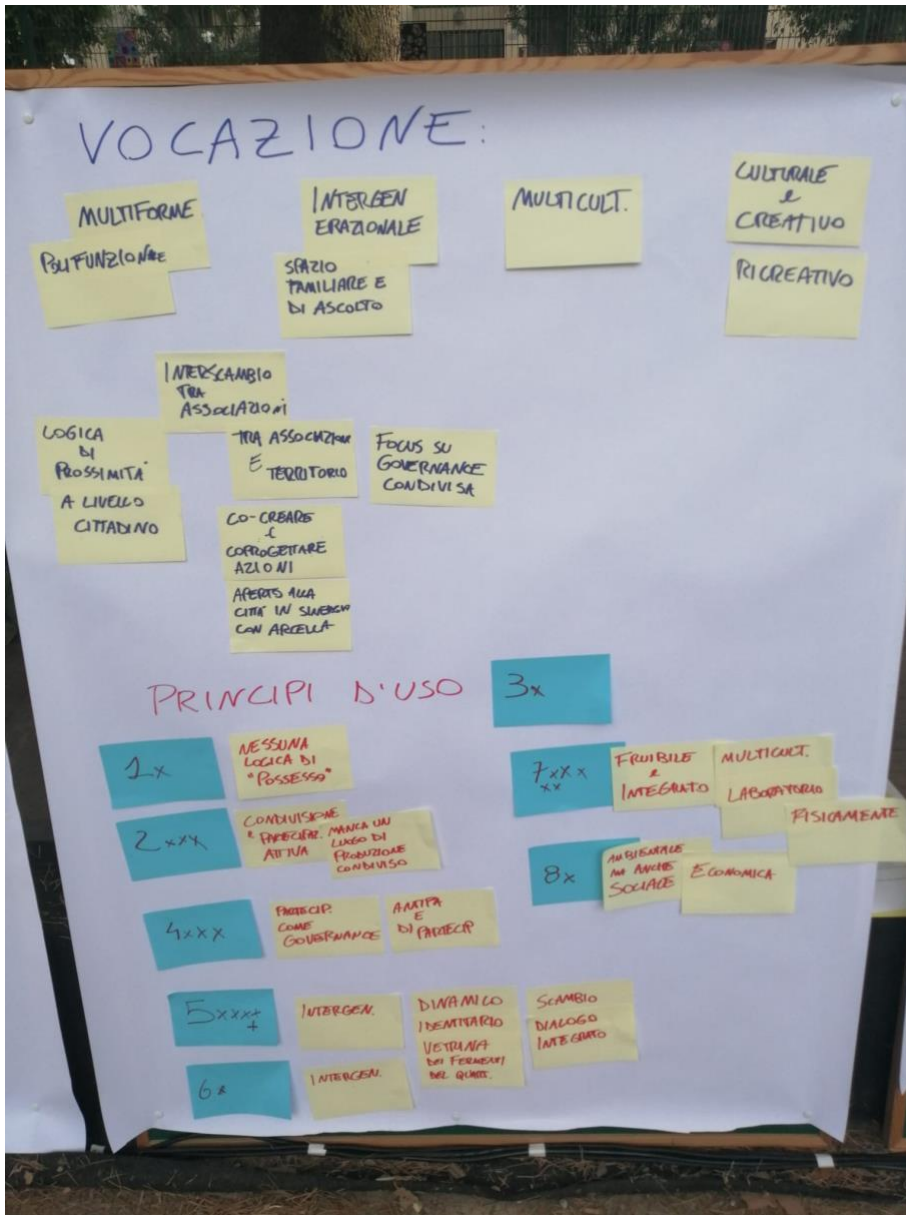 VOCAZIONE:
MULTIFORME
POLIFUNZIONALE
INTERGEN
ERAZIONALE
SPAZIO
FAMILIARE E
DI ASCOLTO
MULTICULT.
CULTURALE
e
CREATIVO
RICREATIVO
INTERSCAMBIO
TRA
ASSOCIAZIONI
LOGICA
DI
PROSSIMITÀ
A LIVELLO
CITTADINO
TRA ASSOCIAZIONI
E TERRITORIO
FOCUS SU
GOVERNANCE
CONDIVISA
CO-CREARE
E
COPROGETTARE
AZIONI
APERTO ALLA
CITTÀ IN SINERGIA
CON ARCELLA
PRINCIPI D'USO
3x
1x
NESSUNA
LOGICA DI
"POSSESSO"
2xxx
CONDIVISIONE
e PARTECIPAZ.
ATTIVA
MANCA UN
LUOGO DI
PRODUZIONE
CONDIVISO
4xxx
PARTECIP.
COME
GOVERNANCE
E
DI PARTECIP
5xxxx
+
INTERGEN.
DINAMICO
IDENTITARIO
VETRINA
DEI FERMENTI
DEL QUART.
SCAMBIO
DIALOGO
INTEGRATO
6x
INTERGEN.
7xxx
xx
FRUIBILE
e
INTEGRATO
MULTICULT.
LABORATORIO
FISICAMENTE
8x
AMBIENTALE
MA ANCHE
SOCIALE
ECONOMICA